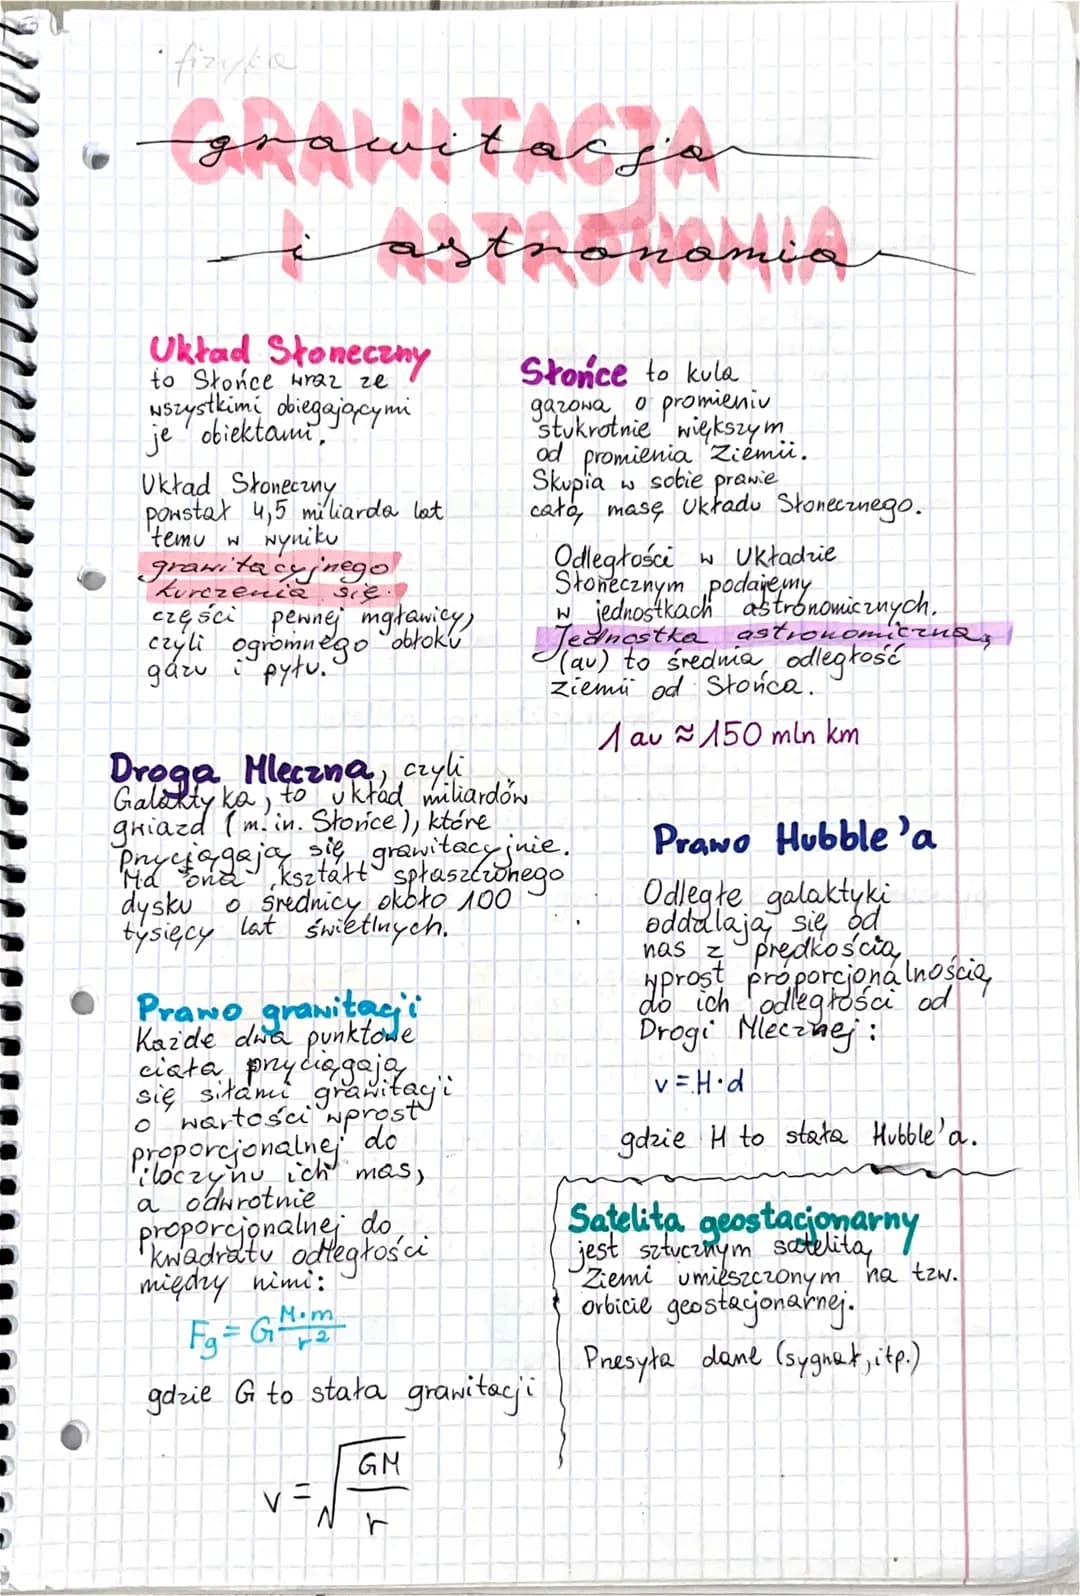 fizyka
GRAWITACJA
grawitacja
I ASTRONOMIA
i astronomia
Układ Słoneczny
to Słońce wraz ze
wszystkimi obiegającymi
je obiektami.
Układ Słoneczny
powstał 4,5 miliarda lat
temu w wyniku
grawitacyjnego
kurczenia się
części pewnej mgławicy,
czyli ogromnego obłoku
gazu i pyłu.
Słońce to kula
gazowa o promieniu
stukrotnie większym
od promienia Ziemii.
Skupia w sobie prawie
całą masę Układu Słonecznego.
Odległości w Układzie
Słonecznym podajemy
w jednostkach astronomicznych.
Jednostka astronomiczna,
(au) to średnia odległość
ziemii od Słońca.
1 au ≈ 150 mln km
Droga Mleczna, czyli
Galaktyka, to układ miliardów
gwiazd (m.in. Słońce), które
przyciągają się grawitacyjnie.
Ma ona kształt spłaszczonego
dysku o średnicy około 100
tysięcy lat świetlnych.
Prawo Hubble'a
Odległe galaktyki
oddalają się od
nas z prędkością
wprost proporcjonalnością
do ich odległości od
Drogi Mlecznej:
v = H·d
gdzie H to stała Hubble'a.
Prawo grawitacji
Każde dwa punktowe
ciała przyciągają
się siłami grawitacji
o wartości wprost
proporcjonalnej do
iloczynu ich mas,
a odwrotnie
proporcjonalnej do
kwadratu odległości
między nimi:
Fg = G M·m / r²
gdzie G to stała grawitacji
v = √(GM / r)
Satelita geostacjonarny
jest sztucznym satelitą
Ziemi umieszczonym na tzw.
orbicie geostacjonarnej.
Przesyła dane (sygnał, itp.)